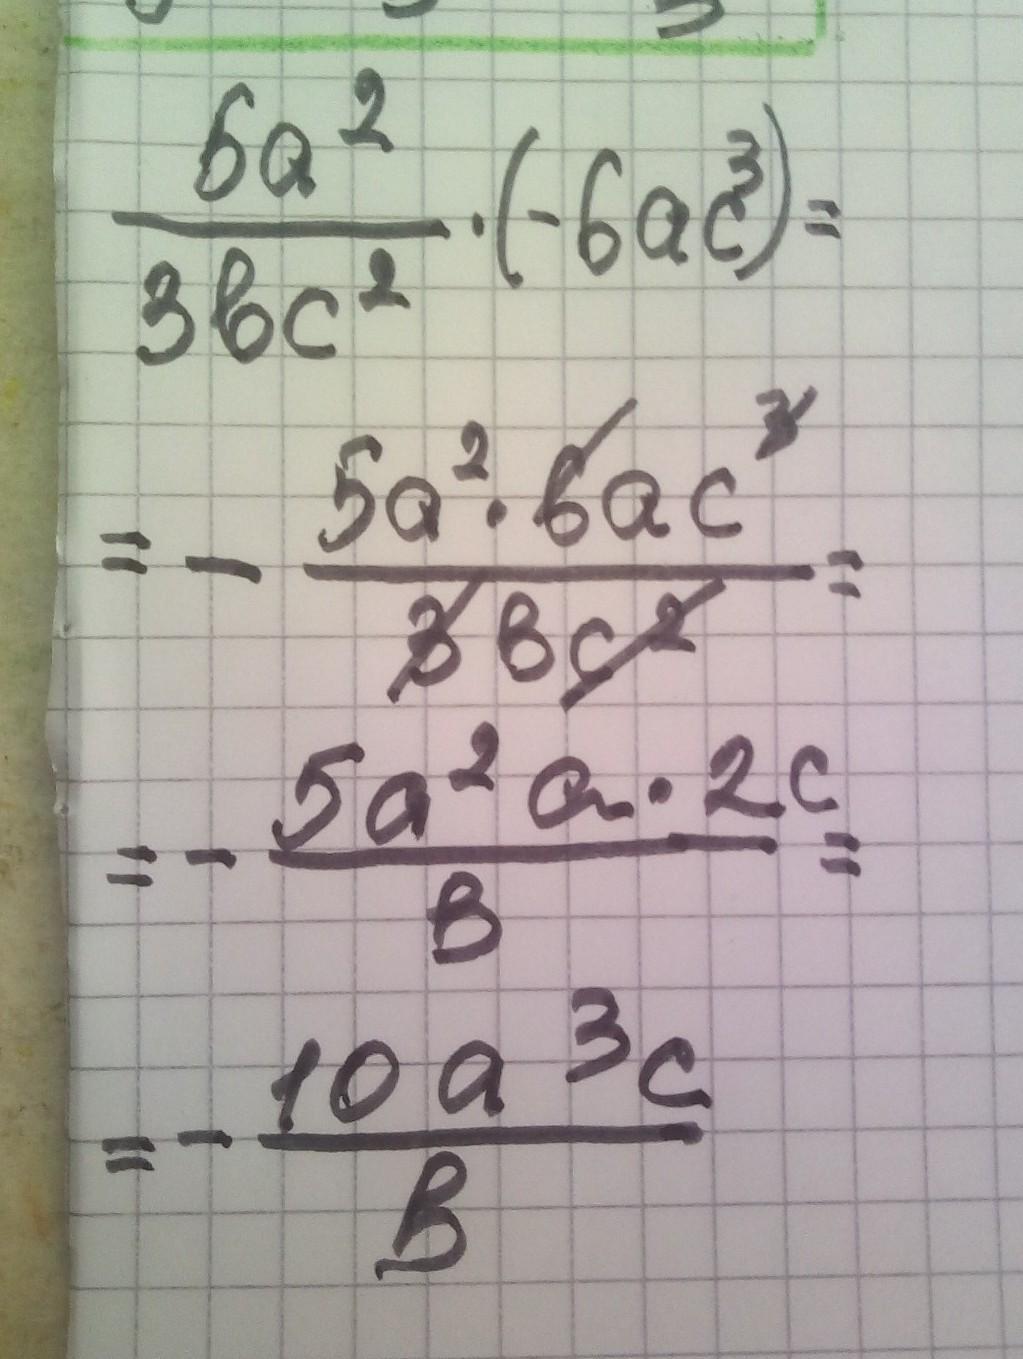 5a²/3bc² · (-6ac³) =
= - 5a² · 6ac³/3bc² =
= - 5a² a · 2c/b =
= - 10a³c/b